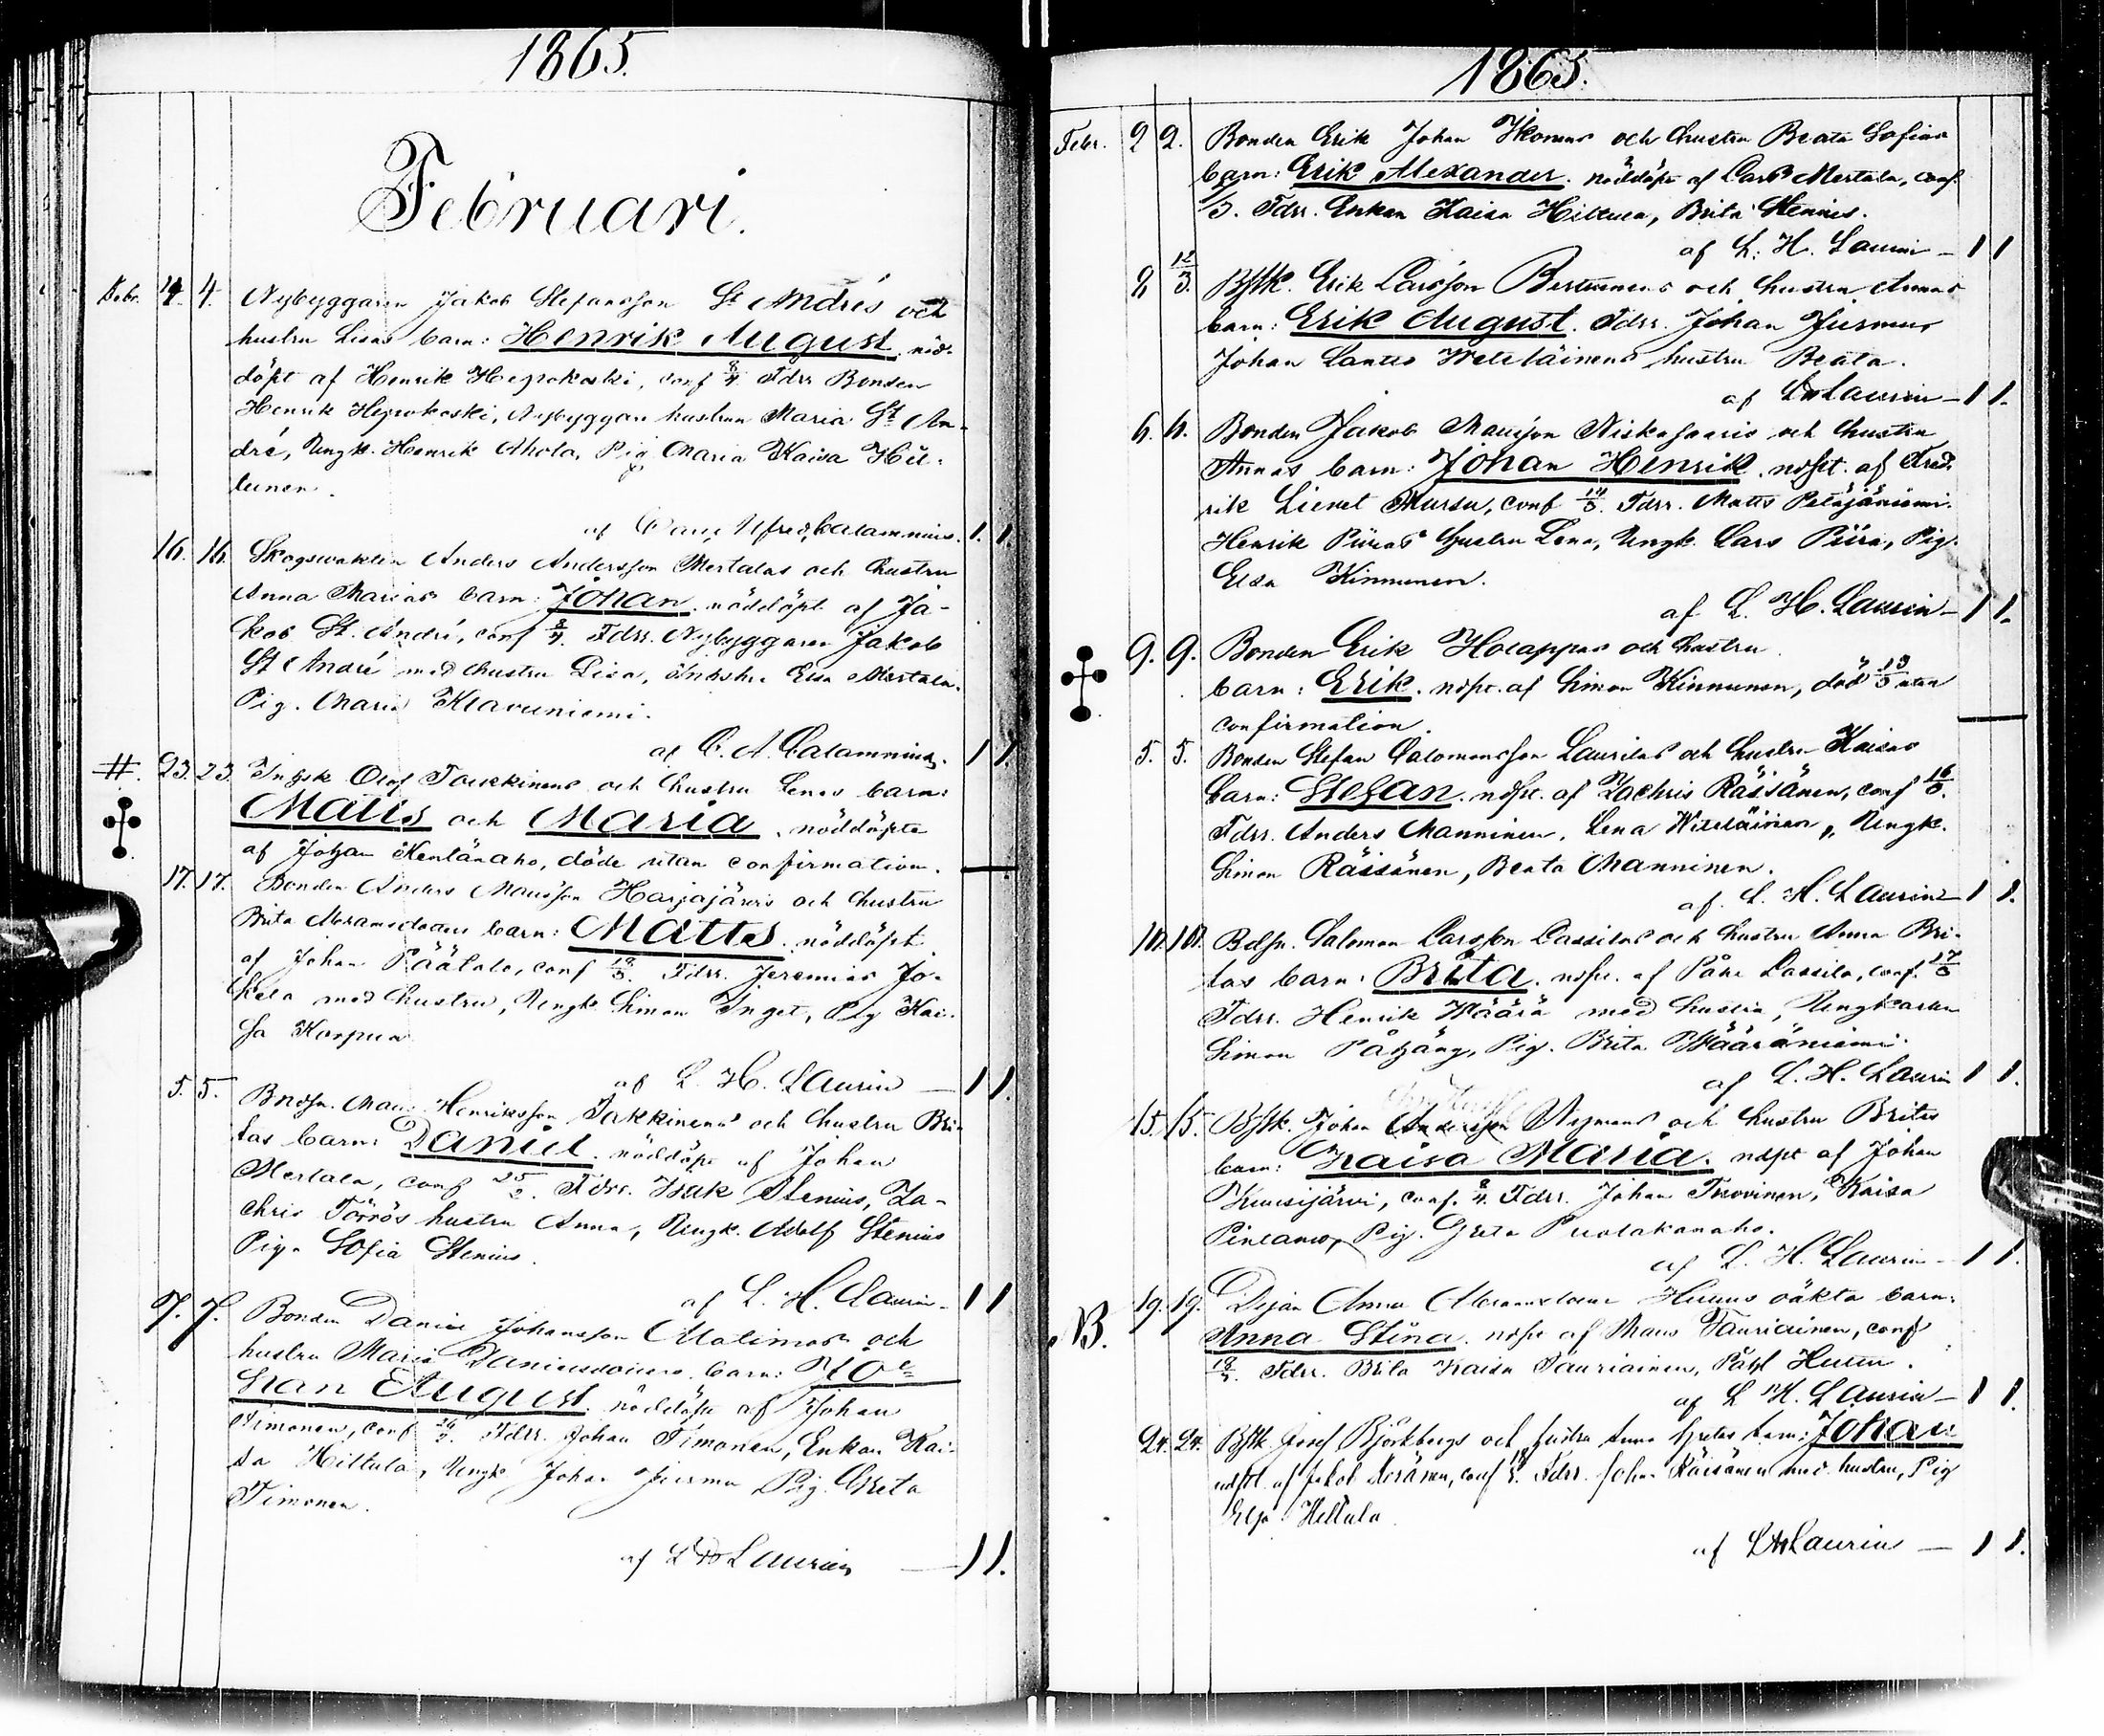 1865.
Februari.
Febr. 4. 4. Nybyggaren Jakob Stefansson St Andrés och
hustru Lisas barn: Henrik August, nöd-
döpt af Henrik Hepokoski, conf 8/4. Fdrr Bonden
Henrik Hepokoski, Nybyggare hustrun Maria St An-
dré, Yngk. Henrik Ahola, Pig Maria Kaisa Hil-
tunen.
af Calamnius. 1. 1.
16. 16. Skogsvakten Anders Andersson Mertalas och hustru
Anna Marias barn: Johan. nöddöpt af Ja-
kob St. André, conf 8/4. Fdrr. Nybyggaren Jakob
St André med hustru Lisa, Elsa Mertala.
Pig. Maria Klavuniemi.
af C. A. Calamnius. 1 1.
#. 23. 23. Olof Torkkinens och hustru Lenas barn:
Matts och Maria, nöddöpte
af Johan Kentänaho, döde utan confirmation.
17. 17. Bonden Anders Mansson Harjajärvis och hustru
Brita barn: Matts. nöddöpt
af Johan Päätalo, conf Fdrr. Jeremias Jo-
kela med hustru, Yngk Simon Inget, Pig Kai-
sa Korpua
af L. H. Laurin — 1 1.
5. 5. Henriksson Takkinens och hustru Bri-
tas barn: Daniel. nöddöpt af Johan
Mertala, conf 25/2. Fdrr. Isak Stenius, Za-
chris Törrös hustru Anna, Yngk. Adolf Stenius
Piga Sofia Stenius.
af L. H. Laurin. 1 1
7. 7. Bonden Daniel Johansson Matimos och
hustru Maria Danielsdotters barn: Jo-
han August. nöddöpt af Johan
Timonen, conf Fdrr. Johan Timonen, Enkan Kai-
sa Hiltula, Yngk Johan Juurma Pig. Greta
Timonen.
af L H Laurin — 1 1.
1865.
Febr. 2 2. Bonden Erik Johan Ikonens och hustru Beata Sofias
barn: Erik Alexander. nöddöpt af Lars Mertala, conf.
Fdrr. Enkan Kaisa Hiltula, Brita Stenius.
af L. H. Laurin — 1 1
2 12/3. Bstk. Erik Larsson och hustru Annas
barn: Erik August. Fdrr. Johan Juurmus
Johan Lantto Weteläinens hustru Beata.
af LH Laurin — 1 1.
6. 6. Bonden Jakob Mansson Niskasaaris och hustru
Annas barn: Johan Henrik. ndpt. af Fred-
rik Lienet Mursu, conf 14/5. Fdrr. Matts Petäjäniemi.
Henrik Piiras hustru Lena, Yngk. Lars Piira, Pig.
Elsa Kinnunen.
af L. H. Laurin — 1 1.
9. 9. Bonden Erik Holappas och hustru
barn: Erik. ndpt. af Simon Kinnunen, död 13/5 utan
confirmation.
5. 5. Bonden Stefan Salomonsson Laurilas och hustru Kaisas
barn: Stefan. ndpt. af Zachris Räisänen, conf 16/5.
Fdrr. Anders Manninen, Lena Witeläinen, Yngk.
Simon Räisänen, Beata Manninen.
af. L. H. Laurin — 1 1.
10. 10. Bdsn. Salomon Larsson Lassilas och hustru Anna Bri-
tas barn: Brita. ndpt. af Påhl Lassila, conf. 17/5
Fdrr. Henrik Määrä med hustru, Yngkarlen
Simon Brita Wääräniemi.
af L. H. Laurin 1 1.
15. 15. Bstk. Johan Andersson Nymans och hustru Britas
barn: Kaisa Maria. ndpt af Johan
Kuusijärvi, conf. 8/4. Fdrr. Johan Tuovinen, Kaisa
Pig. Greta Puolakanaho.
af L. H. Laurin — 1 1.
B. 19. 19. Dejan Anna Huttus oäkta barn:
Anna Stina. ndpt af Mans Tauriainen, conf
Fdrr. Brita Kaisa Tauriainen, Påhl Huttu.
af L H. Laurin — 1 1.
24. 24. Bstk. Josef Björkbergs och hustru Anna Gretas barn: Johan
ndpt. af Jakob Keränen, conf Fdrr. Johan Räisänen med hustru, Pig
Elsa Hiltula
af LH Laurin — 1 1.